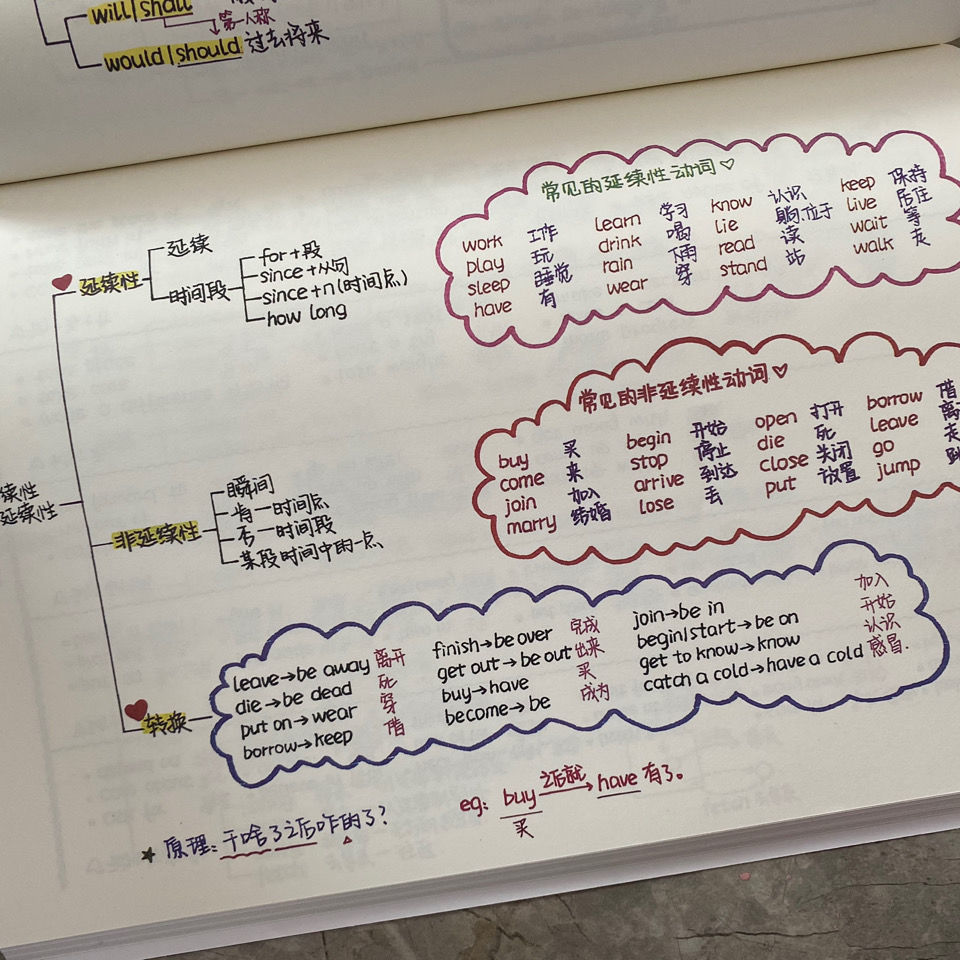 will|shall
第一人称
would|should 过去将来
延续性
延续
时间段
for+段
since+从句
since+n(时间点)
how long
常见的延续性动词♡
work 工作 learn 学习 know 认识 keep 保持
play 玩 drink 喝 lie 躺.位于 live 居住
sleep 睡觉 rain 下雨 read 读 wait 等
have 有 wear 穿 stand 站 walk 走
续性
延续性
非延续性
瞬间
肯一时间点
否一时间段
某段时间中的一点
常见的非延续性动词♡
buy 买 begin 开始 open 打开 borrow 借
come 来 stop 停止 die 死 leave 离
join 加入 arrive 到达 close 关闭 go 走
marry 结婚 lose 丢 put 放置 jump 跳
转换
leave→be away 离开 finish→be over 完成 join→be in 加入
die→be dead 死 get out→be out 出来 begin|start→be on 开始
put on→wear 穿 buy→have 买 get to know→know 认识
borrow→keep 借 become→be 成为 catch a cold→have a cold 感冒.
eg: buy 之后就→ have 有了。
买
★原理:干啥了之后咋的了?